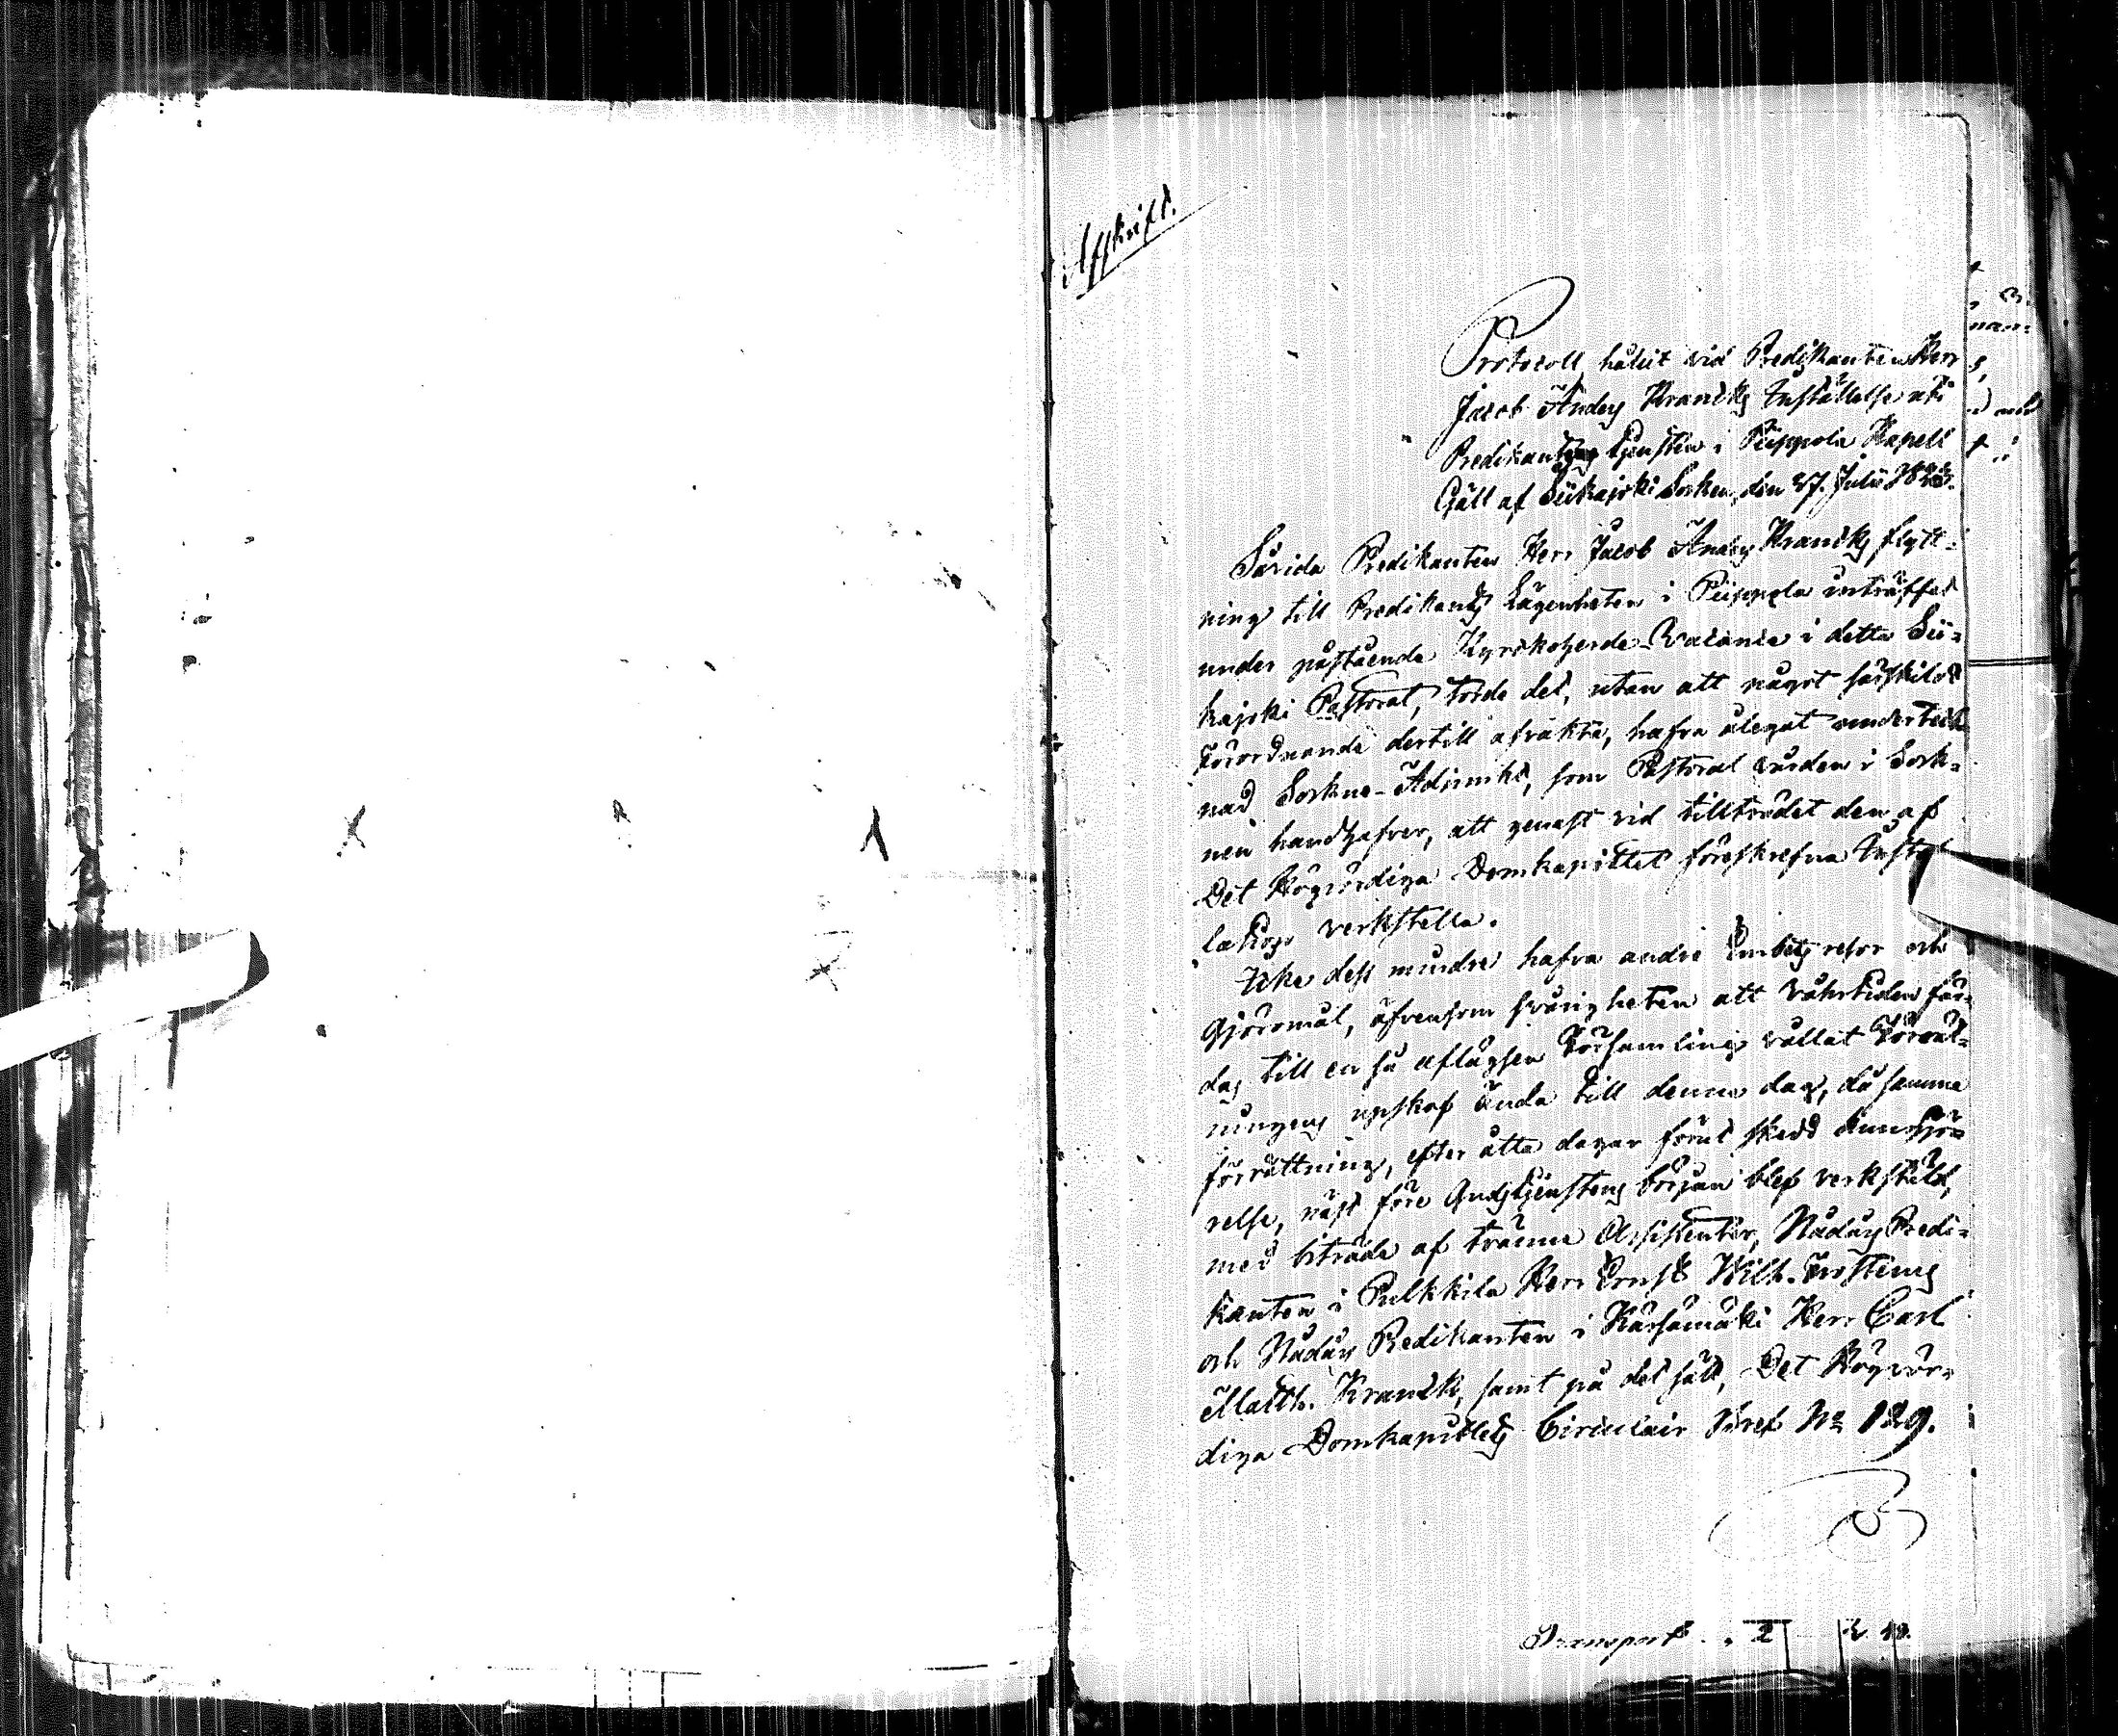 Afskrift.
Protocoll, hållit vid Predikanten Herr
Jacob Anders Krancks Installelse uti
Predikants tjensten i Piippola Kapell
Gäll af Siikajoki Socken, den 27. Julii
Såvida Predikanten Herr Jacob Anders Krancks flytt-
ning till Predikants Lägenheten i Piippola inträffat
under påstående Kyrkoherde-Vacance i detta Sii-
kajoki Pastorat, torde det, utan att något särskilt
Förordnande dertill afvakta, hafva ålegat underteck
nad Sockne-Adjunkt, som Pastoral vården i Sock-
nen handhafver, att genast vid tillträdet den af
Det Högvördiga Domkapittlet föreskrefna Instal
lation verkställa.
Icke dess mindre hafva andre Embets resor och
Gjöromål, äfvensom svårigheten att vårtiden fär-
das till en så aflägsen Församling vållat Förrätt-
ningens upskof ända till denna dag, då samma
förrättning, efter åtta dagar förut skedd kungjö-
relse, näst före Gudstjenstens början blef verkstäld,
med biträde af tvänne Assistenter, Nådårs Predi-
kanten i Pulkkila Herr Ernst Wilh. Frosterus
och Nådårs Predikanten i Kärsämäki Herr Carl
Matth. Kranck, samt på det sätt, Det Högvör-
diga Domkapitlets Circulair Bref No 129.
Transport . 2